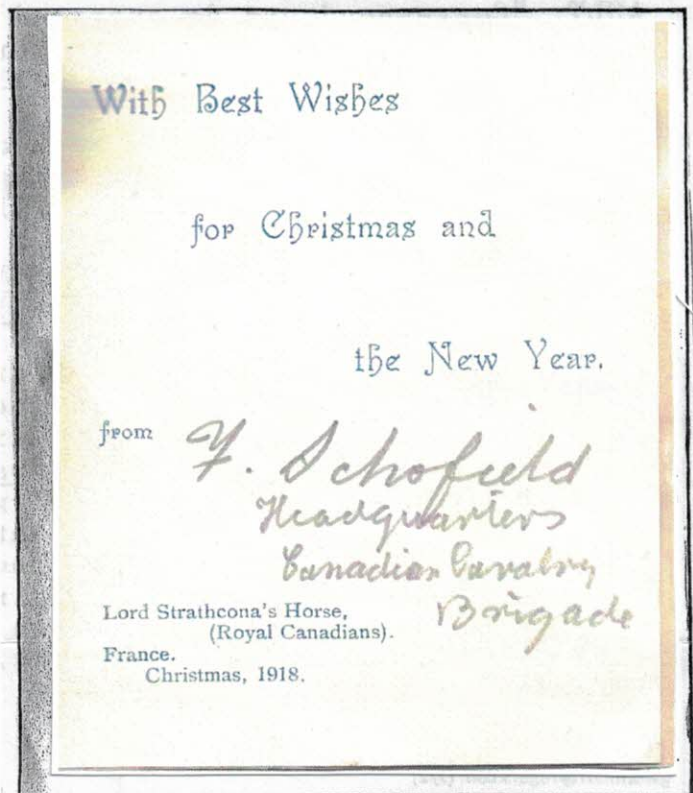 With Best Wishes
for Christmas and
the New Year.
from F. Schofield
Headquarters
Canadian Cavalry
Brigade
Lord Strathcona's Horse,
(Royal Canadians).
France.
Christmas, 1918.